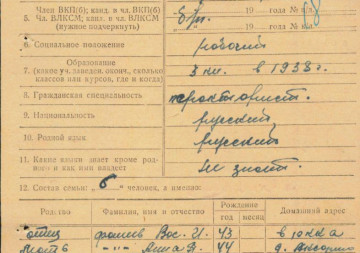 Член ВКП(б); канд. в чл. ВКП(б)
5. Чл. ВЛКСМ; канд. в чл. ВЛКСМ
(нужное подчеркнуть)
19 года №
19 года № к/л
6. Социальное положение рабочий
Образование
7. (какое уч. заведен. оконч., сколько
классов или курсов, где и когда)
3 кл. в 1933 г.
8. Гражданская специальность тракторист.
9. Национальность русский
10. Родной язык русский
11. Какие языки знает кроме род-
ного и как ими владеет
не знает.
12. Состав семьи: „6“ человек, а именно:
Родство Фамилия, имя и отчество Рождение год месяц Домашний адрес
отец Вас. И. 43
мать -„- Анна 44 д.